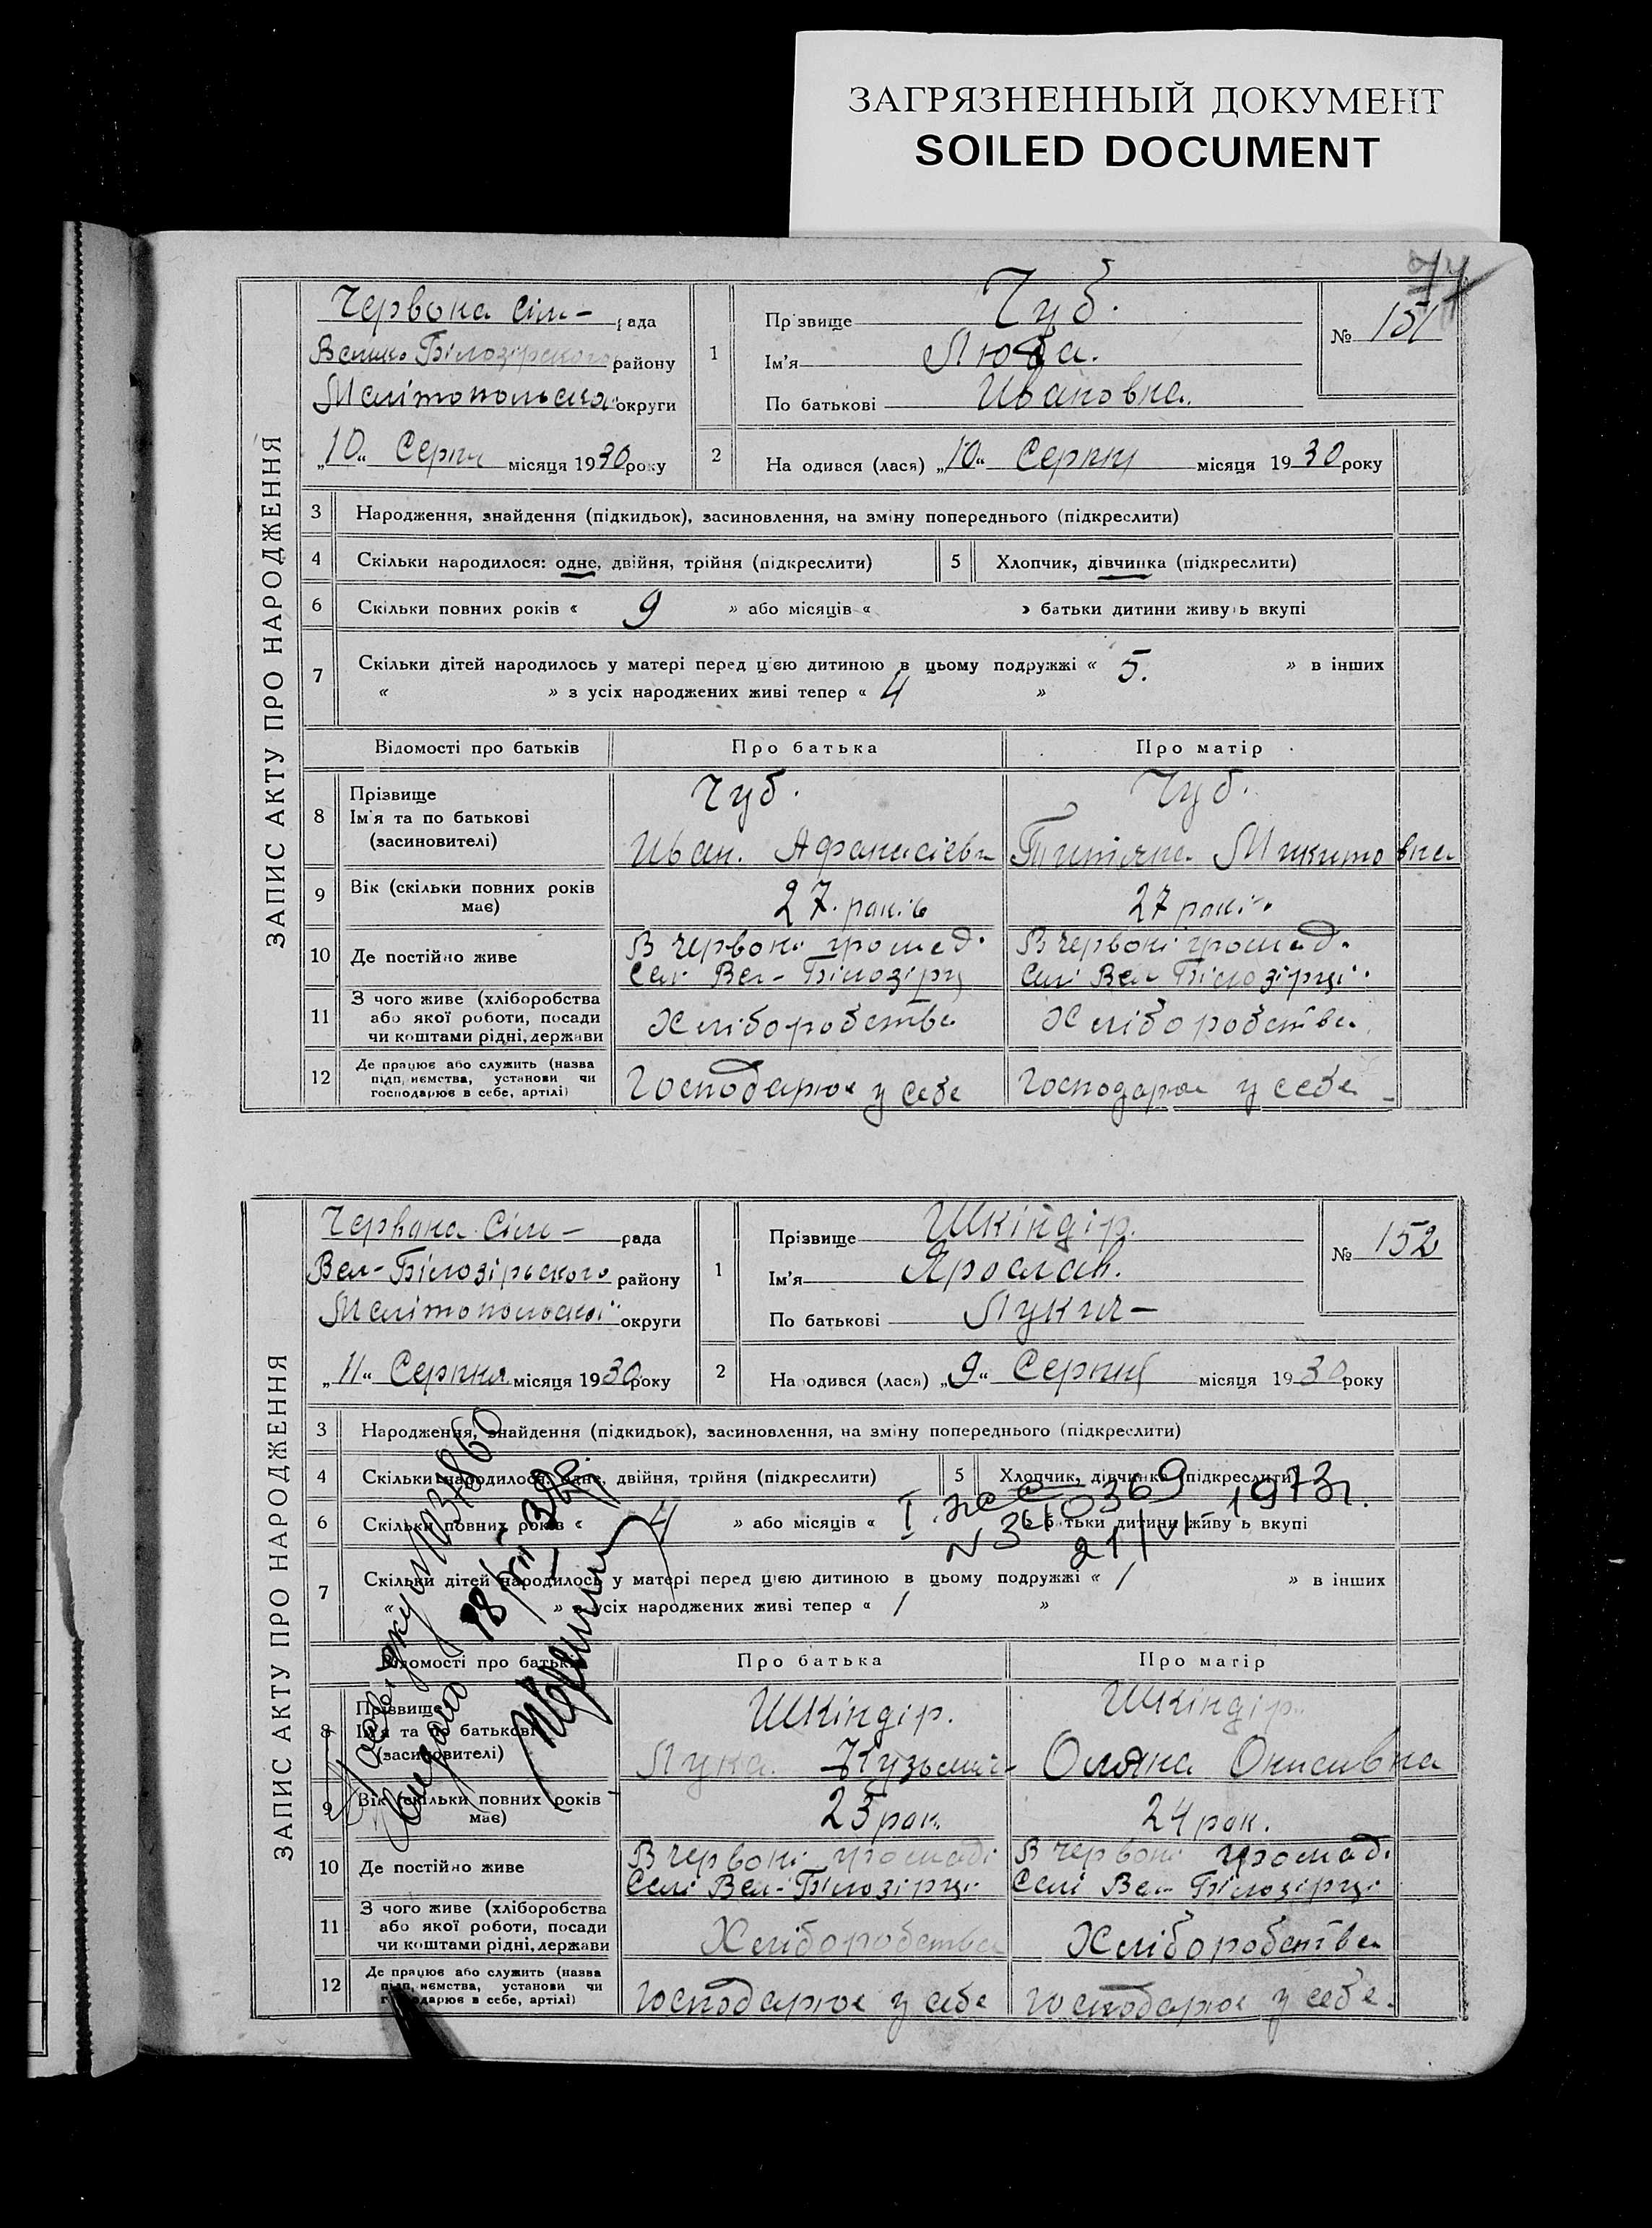 ЗАГРЯЗНЕННЫЙ ДОКУМЕНТ
SOILED DOCUMENT
ЗАПИС АКТУ ПРО НАРОДЖЕННЯ
Червона Сіль- рада
Велико Білозірского району
Мелітопольска округи
„10“ Серпн місяця 1930 року
1
Прізвище Чуб.
Ім'я Люба.
По батькові Ивановна.
№ 151
2
На одився (лася) „10“ Серпня місяця 1930 року
3 Народження, знайдення (підкидьок), засиновлення, на зміну попереднього (підкреслити)
4 Скільки народилося: одне, двійня, трійня (підкреслити)
5 Хлопчик, дівчинка (підкреслити)
6 Скільки повних років « 9 » або місяців « » батьки дитини живу ь вкупі
7 Скільки дітей народилось у матері перед цією дитиною в цьому подружжі « 5. » в інших
« » з усіх народжених живі тепер « 4 »
Відомості про батьків Про батька Про матір
8 Прізвище
Ім'я та по батькові
(засиновителі)
Чуб.
Иван. Афанасієви
Чуб.
Титяна Микитовна
9 Вік (скільки повних років
має)
27. років
27 років
10 Де постійно живе
В червоні громад.
Селі Вел-Білозірц
В червоні громад.
Селі Вел-Білозірці.
11 З чого живе (хліборобства
або якої роботи, посади
чи коштами рідні, держави
Хліборобства
Хліборобства
12 Де працює або служить (назва
підп, иємства, установи чи
господарює в себе, артілі)
Господарює у себе
Господарює у себе
ЗАПИС АКТУ ПРО НАРОДЖЕННЯ
Червона Сіль- рада
Вел-Білозірського району
Мелітопольської округи
„11“ Серпня місяця 1930 року
1
Прізвище Шкіндір.
Ім'я Ярослав.
По батькові Лукич-
№ 152
2
На одився (лася) „9“ Серпня місяця 1930 року
3 Народження, знайдення (підкидьок), засиновлення, на зміну попереднього (підкреслити)
4 Скільки народилося: одне, двійня, трійня (підкреслити)
5 Хлопчик, дівчинка (підкреслити)
6 Скільки повних років « 4 » або місяців « » батьки дитини живу ь вкупі
N 340369 21/VI 1973г.
7 Скільки дітей народилось у матері перед цією дитиною в цьому подружжі « 1 » в інших
« » з усіх народжених живі тепер « 1 »
Відомості про батьків Про батька Про матір
8 Прізвище
Ім'я та по батькові
(засиновителі)
Шкіндір.
Лука. Кузьмич
Шкіндір.
Оляна Онисивна
9 Вік (скільки повних років
має)
25 рок.
24 рок.
10 Де постійно живе
В червоні громаді
Селі Вел-Білозірці.
В червоні громаді
Селі Вел-Білозірці.
11 З чого живе (хліборобства
або якої роботи, посади
чи коштами рідні, держави
Хліборобства
Хліборобства
12 Де працює або служить (назва
підп, иємства, установи чи
господарює в себе, артілі)
Господарює у себе
Господарює у себе.